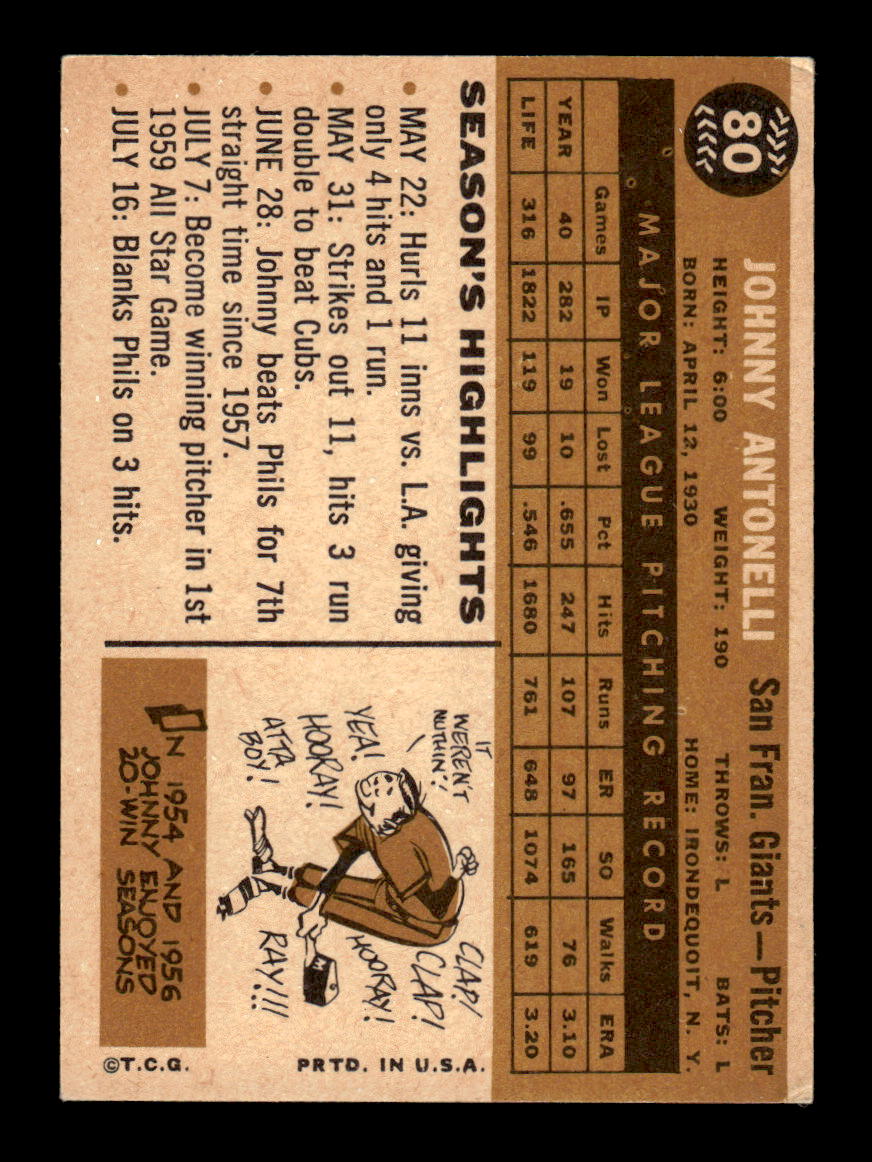 80
JOHNNY ANTONELLI San Fran. Giants—Pitcher
HEIGHT: 6:00 WEIGHT: 190 THROWS: L BATS: L
BORN: APRIL 12, 1930 HOME: IRONDEQUOIT, N. Y.
MAJOR LEAGUE PITCHING RECORD
Games IP Won Lost Pct Hits Runs ER SO Walks ERA
YEAR 40 282 19 10 .655 247 107 97 165 76 3.10
LIFE 316 1822 119 99 .546 1680 761 648 1074 619 3.20
SEASON'S HIGHLIGHTS
• MAY 22: Hurls 11 inns vs. L.A. giving
only 4 hits and 1 run.
• MAY 31: Strikes out 11, hits 3 run
double to beat Cubs.
• JUNE 28: Johnny beats Phils for 7th
straight time since 1957.
• JULY 7: Become winning pitcher in 1st
1959 All Star Game.
• JULY 16: Blanks Phils on 3 hits.
IT
WEREN'T
NUTHIN'!
YEA!
HOORAY!
ATTA
BOY!
CLAP!
CLAP!
HOORAY!
RAY!!!
IN 1954 AND 1956
JOHNNY ENJOYED
20-WIN SEASONS
©T.C.G. PRTD. IN U.S.A.